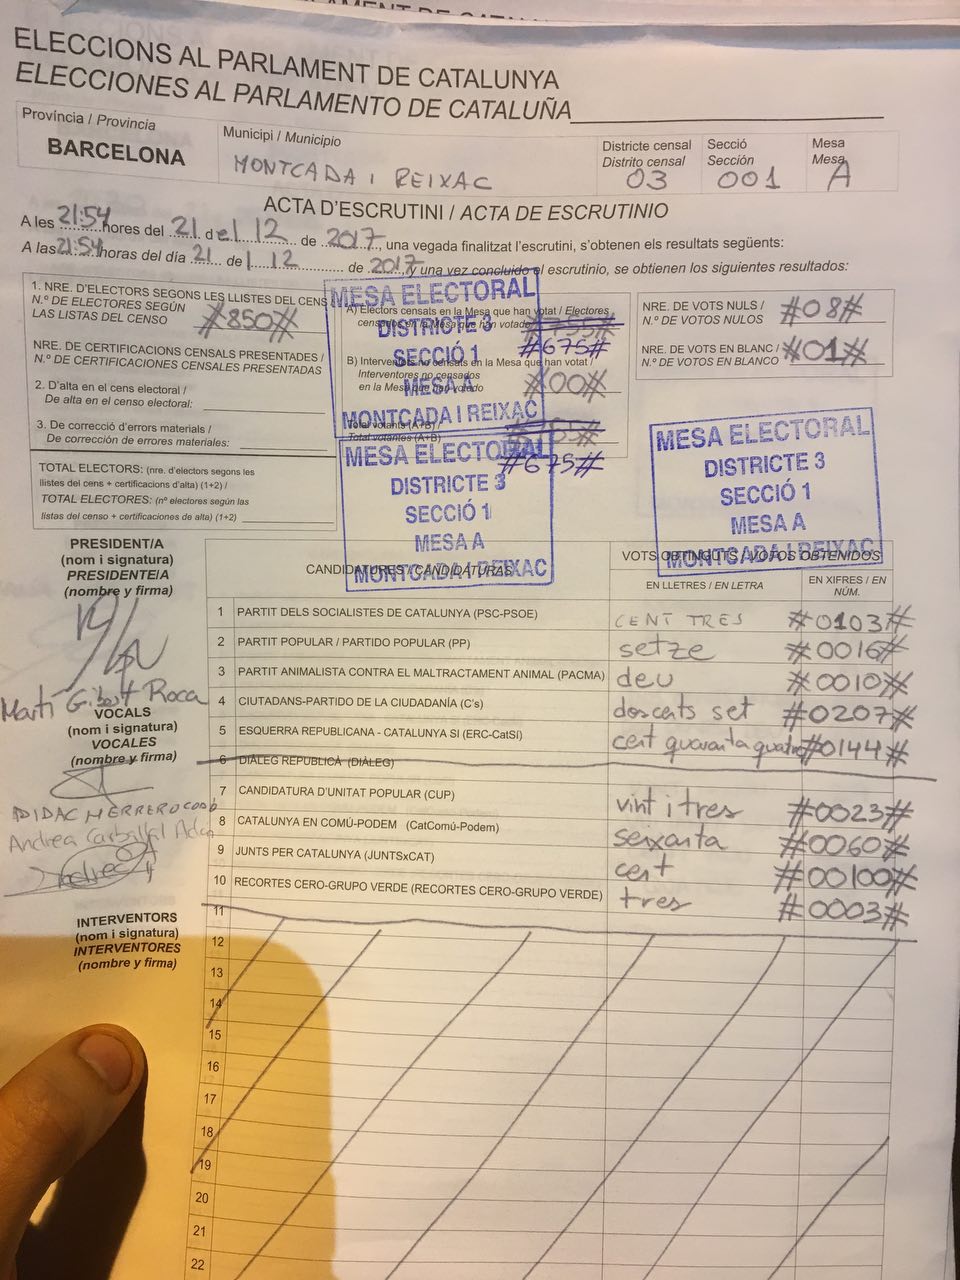 ELECCIONS AL PARLAMENT DE CATALUNYA
ELECCIONES AL PARLAMENTO DE CATALUÑA
Província / Provincia
BARCELONA
Municipi / Municipio
MONTCADA I REIXAC
Districte censal
Distrito censal
03
Secció
Sección
001
Mesa
Mesa
A
ACTA D'ESCRUTINI / ACTA DE ESCRUTINIO
A les 21:54 hores del 21 del 12 de 2017, una vegada finalitzat l'escrutini, s'obtenen els resultats següents:
A las 21:54 horas del día 21 de 12 de 2017, y una vez concluido el escrutinio, se obtienen los siguientes resultados:
1. NRE. D'ELECTORS SEGONS LES LLISTES DEL CENS
N.º DE ELECTORES SEGÚN
LAS LISTAS DEL CENSO
#850#
NRE. DE CERTIFICACIONS CENSALS PRESENTADES /
N.º DE CERTIFICACIONES CENSALES PRESENTADAS
2. D'alta en el cens electoral /
De alta en el censo electoral:
3. De correcció d'errors materials /
De corrección de errores materiales:
TOTAL ELECTORS: (nre. d'electors segons les
llistes del cens + certificacions d'alta) (1+2) /
TOTAL ELECTORES: (nº electores según las
listas del censo + certificaciones de alta) (1+2)
A) Electors censats en la Mesa que han votat / Electores
censados en la Mesa que han votado
#675#
B) Interventors no censats en la Mesa que han votat /
Interventores no censados
en la Mesa que han votado
#00#
Total votants (A+B) /
Total votantes (A+B)
#675#
NRE. DE VOTS NULS /
N.º DE VOTOS NULOS
#08#
NRE. DE VOTS EN BLANC /
N.º DE VOTOS EN BLANCO
#01#
MESA ELECTORAL
DISTRICTE 3
SECCIÓ 1
MESA A
MONTCADA I REIXAC
MESA ELECTORAL
DISTRICTE 3
SECCIÓ 1
MESA A
MONTCADA I REIXAC
MESA ELECTORAL
DISTRICTE 3
SECCIÓ 1
MESA A
MONTCADA I REIXAC
PRESIDENT/A
(nom i signatura)
PRESIDENTE/A
(nombre y firma)
Martí Gibert Roca
VOCALS
(nom i signatura)
VOCALES
(nombre y firma)
DIDAC HERRERO
Andrea Carballal
INTERVENTORS
(nom i signatura)
INTERVENTORES
(nombre y firma)
CANDIDATURES / CANDIDATURAS
VOTS OBTINGUTS / VOTOS OBTENIDOS
EN LLETRES / EN LETRA
EN XIFRES / EN
NÚM.
1 PARTIT DELS SOCIALISTES DE CATALUNYA (PSC-PSOE) CENT TRES #0103#
2 PARTIT POPULAR / PARTIDO POPULAR (PP) setze #0016#
3 PARTIT ANIMALISTA CONTRA EL MALTRACTAMENT ANIMAL (PACMA) deu #0010#
4 CIUTADANS-PARTIDO DE LA CIUDADANÍA (C's) doscents set #0207#
5 ESQUERRA REPUBLICANA - CATALUNYA SI (ERC-CatSí) cent quaranta quatre #0144#
6 DIÀLEG REPUBLICÀ (DIÀLEG)
7 CANDIDATURA D'UNITAT POPULAR (CUP) vint i tres #0023#
8 CATALUNYA EN COMÚ-PODEM (CatComú-Podem) seixanta #0060#
9 JUNTS PER CATALUNYA (JUNTSxCAT) cent #00100#
10 RECORTES CERO-GRUPO VERDE (RECORTES CERO-GRUPO VERDE) tres #0003#
11
12
13
14
15
16
17
18
19
20
21
22